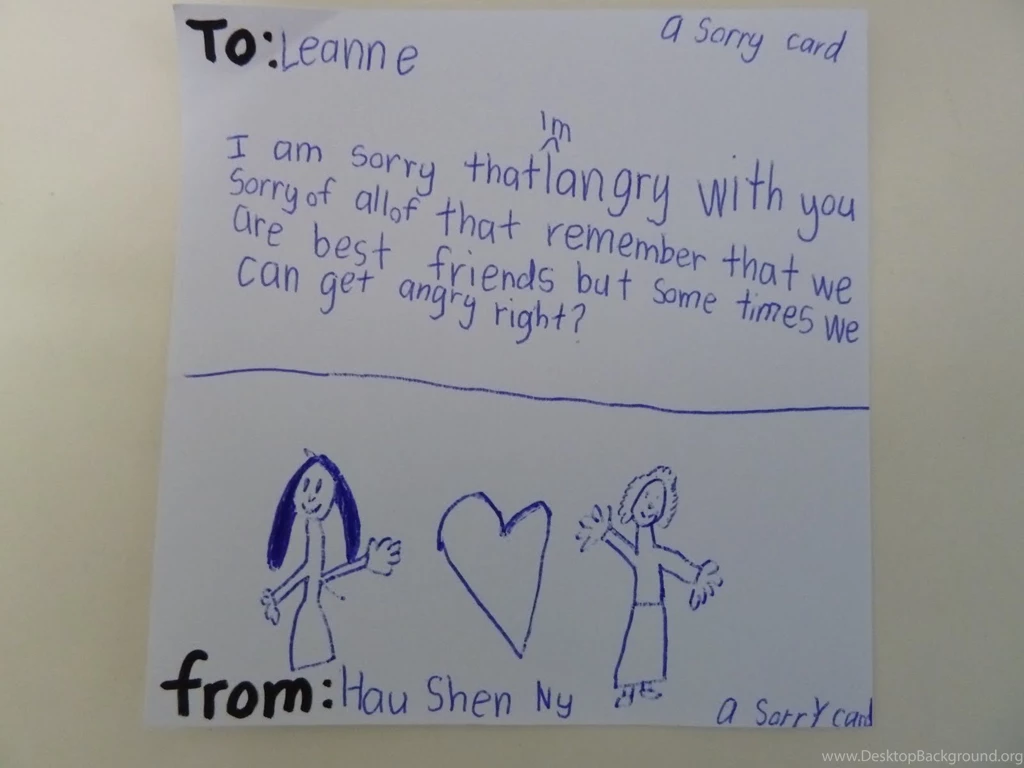 To: Leanne
a sorry card
Im
I am sorry that angry with you
Sorry of all of that remember that we
are best friends but some times we
can get angry right?
from: Hau Shen Ny
a Sorry card
www.DesktopBackground.org